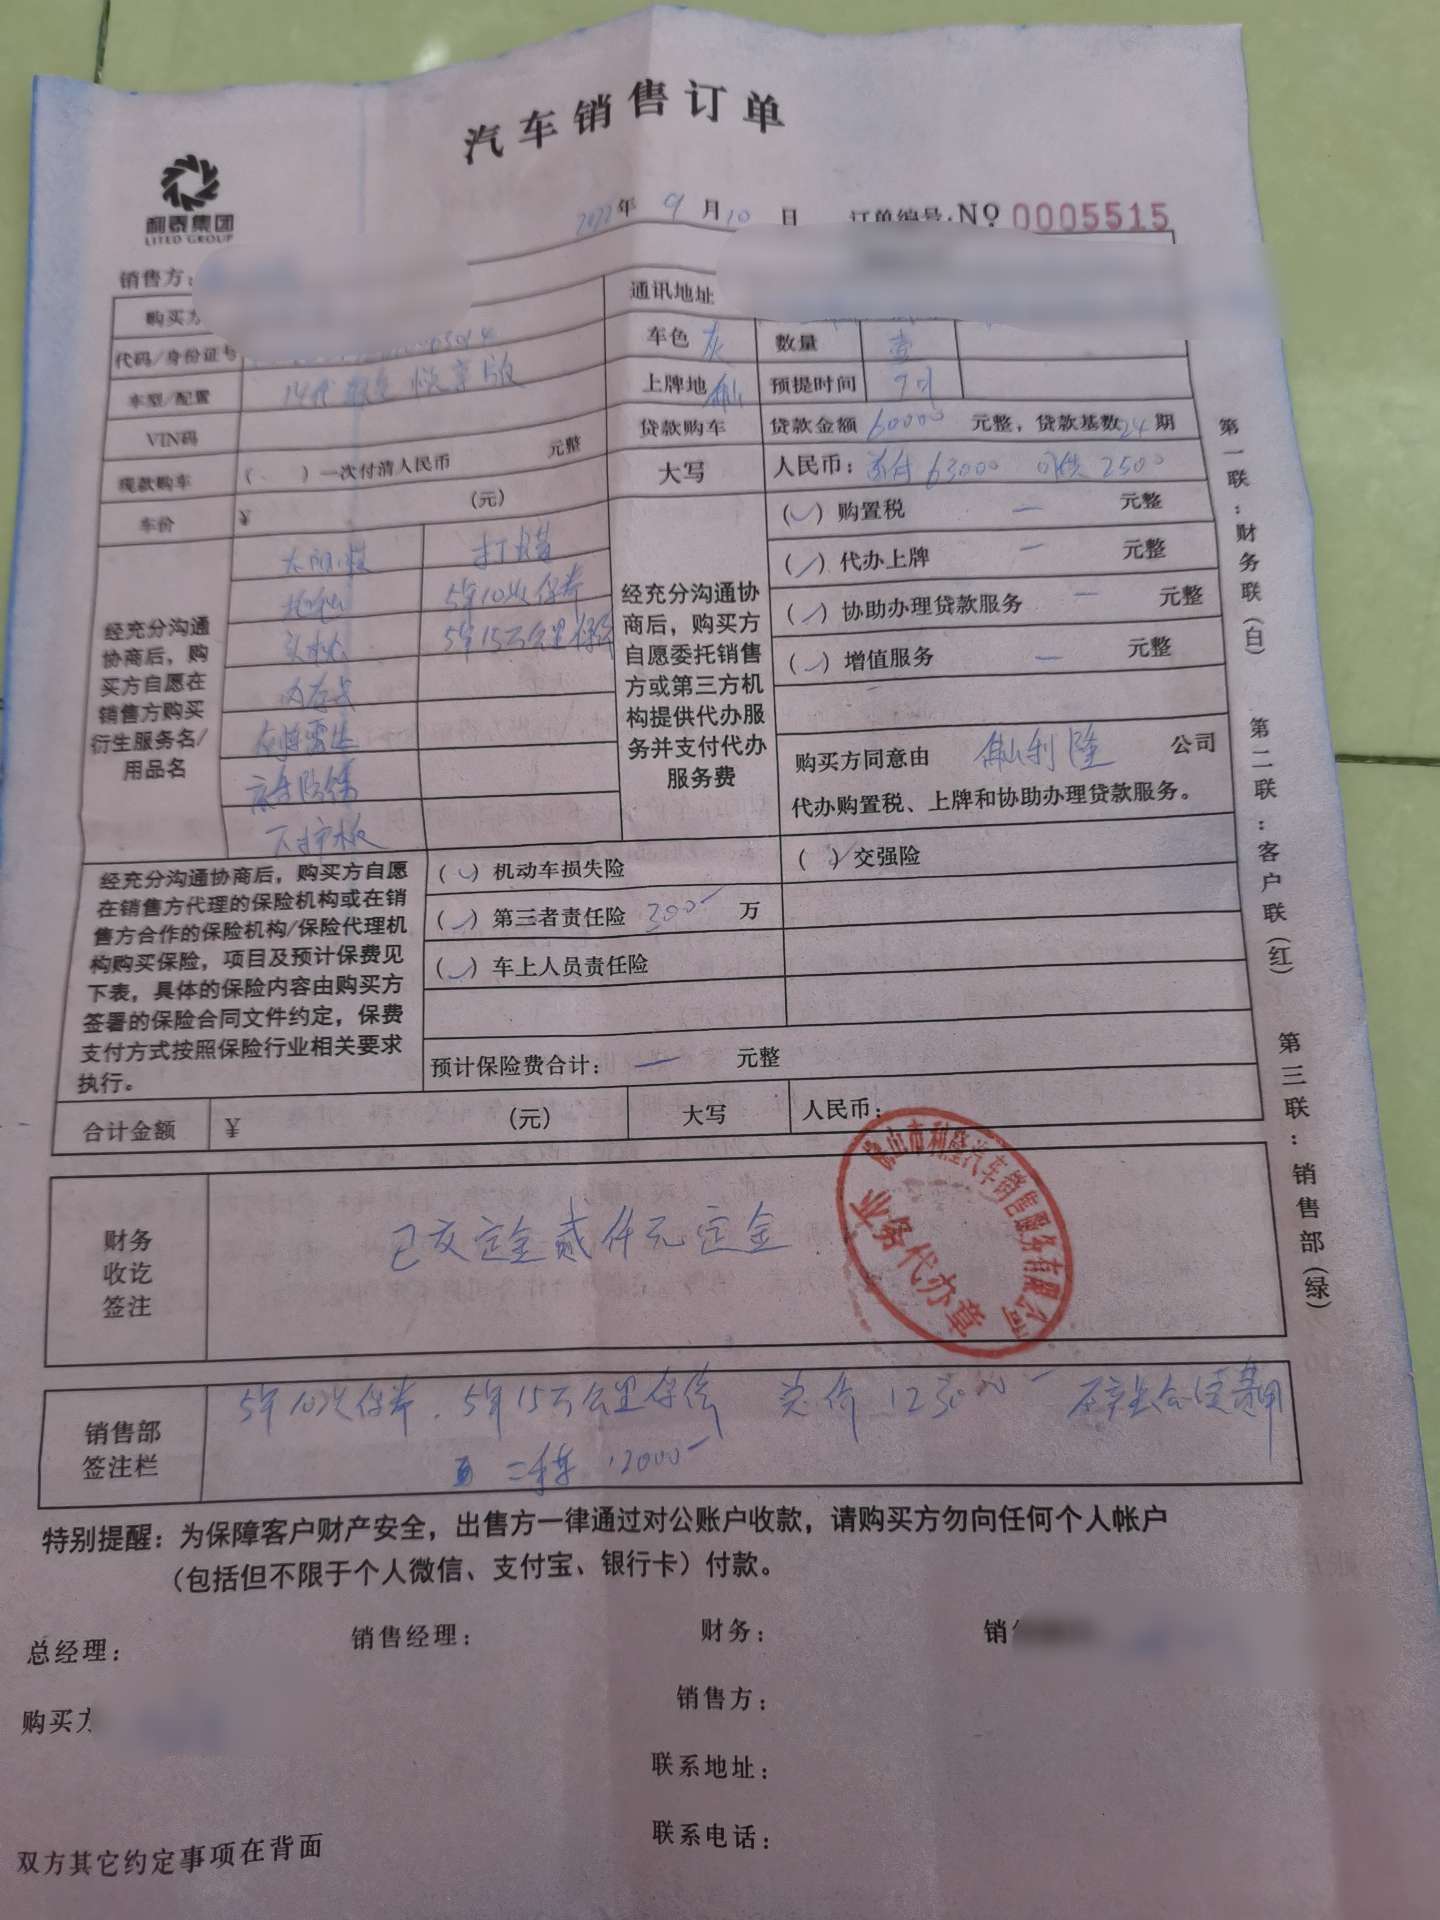 汽车销售订单
利泰集团
LITED GROUP
2022年 9月10日 订单编号:NO. 0005515
销售方:
购买方
通讯地址
代码/身份证号
车色 灰 数量 壹
车型/配置 14代 轩逸 悦享版
上牌地 佛山 预提时间 9月
VIN码
贷款购车 贷款金额 60000 元整,贷款基数 24 期
现款购车 ( )一次付清人民币 元整
大写 人民币: 首付 63000 月供 2500
车价 ¥ (元)
经充分沟通协商后,购买方自愿在销售方购买衍生服务名/用品名
太阳膜 打蜡
地毯 5年10次保养
头枕 5年15万公里保修
内存卡
右边雷达
底盘防锈
下护板
经充分沟通协商后,购买方自愿委托销售方或第三方机构提供代办服务并支付代办服务费
(✓)购置税 — 元整
(✓)代办上牌 — 元整
(✓)协助办理贷款服务 — 元整
(✓)增值服务 — 元整
购买方同意由 佛山利隆 公司
代办购置税、上牌和协助办理贷款服务。
经充分沟通协商后,购买方自愿在销售方代理的保险机构或在销售方合作的保险机构/保险代理机构购买保险,项目及预计保费见下表,具体的保险内容由购买方签署的保险合同文件约定,保费支付方式按照保险行业相关要求执行。
(✓)机动车损失险 (✓)交强险
(✓)第三者责任险 300 万
(✓)车上人员责任险
预计保险费合计: — 元整
合计金额 ¥ (元) 大写 人民币:
财务收讫签注
已交定金贰仟元定金
佛山市利隆汽车销售服务有限公司
业务代办章
销售部签注栏
5年10次保养. 5年15万公里保修 总价 123000 不产生合同费用
二手车 12000
特别提醒:为保障客户财产安全,出售方一律通过对公账户收款,请购买方勿向任何个人帐户
(包括但不限于个人微信、支付宝、银行卡)付款。
总经理: 销售经理: 财务: 销
购买方 销售方:
联系地址:
联系电话:
双方其它约定事项在背面
第一联:财务联(白) 第二联:客户联(红) 第三联:销售部(绿)